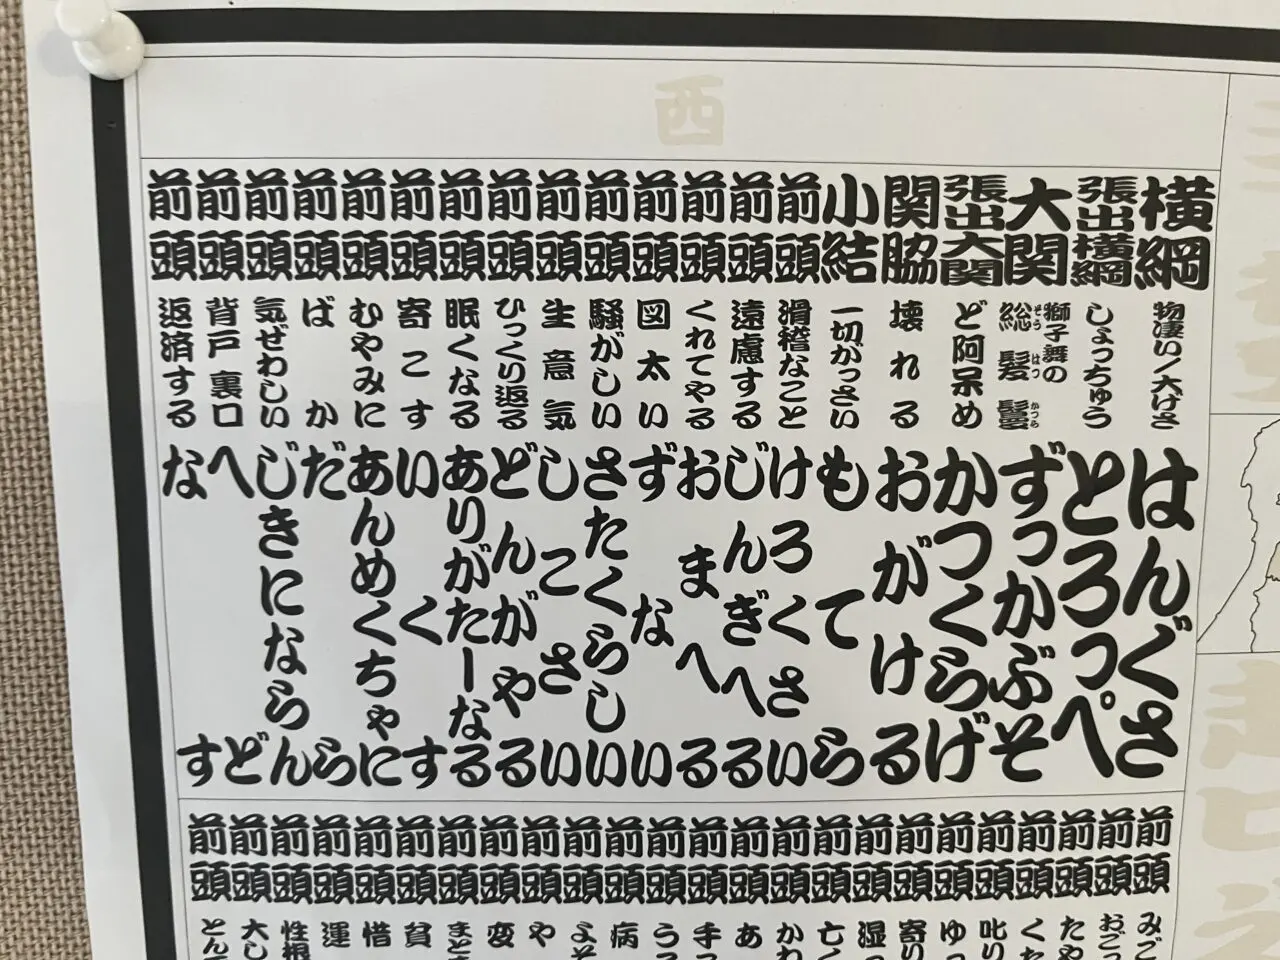 西
横綱 物凄い/大げさ はんぐさ
張出横綱 しょっちゅう とろっぺ
大関 獅子舞の総髪鬘 ぞうはつかつら ずっかぶそ
張出大関 ど阿呆め かつくらげ
関脇 壊れる おがける
小結 一切がっさい もてら
前頭 滑稽なこと けろくさい
前頭 遠慮する じんぎへる
前頭 くれてやる おまへる
前頭 図太い ずない
前頭 騒がしい さたくらしい
前頭 生意気 しこさい
前頭 ひっくり返る どんがやる
前頭 眠くなる ありがたーなる
前頭 寄こす いくす
前頭 むやみに あんめくちゃに
前頭 ばか だら
前頭 気ぜわしい じきにならん
前頭 背戸裏口 へど
前頭 返済する なす
前頭 みご
前頭 おごっ
前頭 たや
前頭 くた
前頭 叱り
前頭 ゆっ
前頭 寄り
前頭 湿っ
前頭 亡く
前頭 かわ
前頭 あ
前頭 手っ
前頭 うっ
前頭 病
前頭 よそ
前頭 や
前頭 変
前頭 まど
前頭 貧
前頭 惜
前頭 運
前頭 性根
前頭 大し
前頭 とん